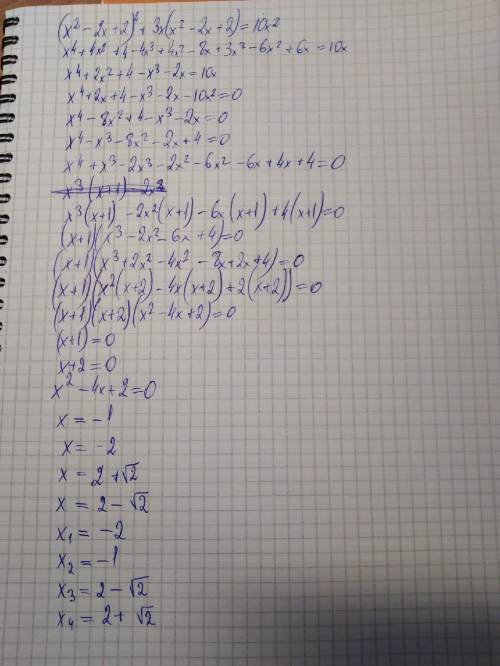 (x² - 2x + 2)² + 3x(x² - 2x + 2) = 10x²
x⁴ + 4x² + 4 - 4x³ + 4x² - 8x + 3x³ - 6x² + 6x = 10x
x⁴ + 2x² + 4 - x³ - 2x = 10x
x⁴ + 2x + 4 - x³ - 2x - 10x² = 0
x⁴ - 8x² + 4 - x³ - 2x = 0
x⁴ - x³ - 8x² - 2x + 4 = 0
x⁴ + x³ - 2x³ - 2x² - 6x² - 6x + 4x + 4 = 0
x³(x+1) - 2x
x³(x+1) - 2x²(x+1) - 6x(x+1) + 4(x+1) = 0
(x+1)(x³ - 2x² - 6x + 4) = 0
(x+1)(x³ + 2x² - 4x² - 8x + 2x + 4) = 0
(x+1)(x²(x+2) - 4x(x+2) + 2(x+2)) = 0
(x+1)(x+2)(x² - 4x + 2) = 0
(x+1) = 0
x+2 = 0
x² - 4x + 2 = 0
x = -1
x = -2
x = 2 + √2
x = 2 - √2
x₁ = -2
x₂ = -1
x₃ = 2 - √2
x₄ = 2 + √2